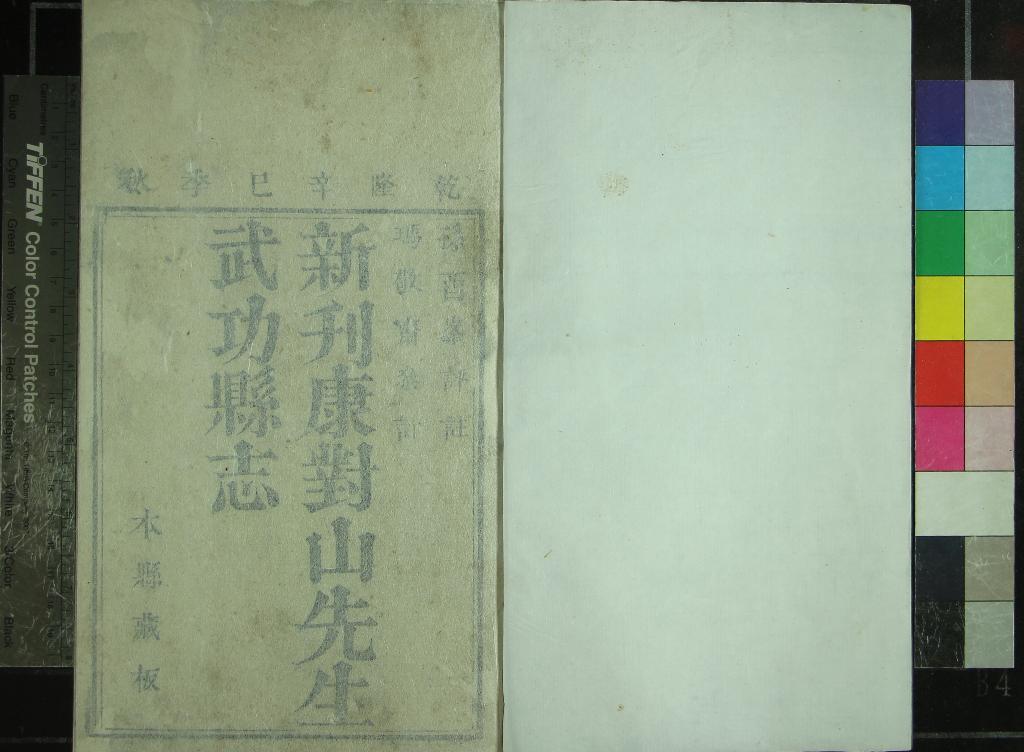 乾隆辛巳季秋
孫酉峯評註
瑪敬齋叅訂
新刊康對山先生
武功縣志
本縣藏板
TIFFEN Color Control Patches
Centimetres
Blue Cyan Green Yellow Red Magenta White 3/Color Black
B4